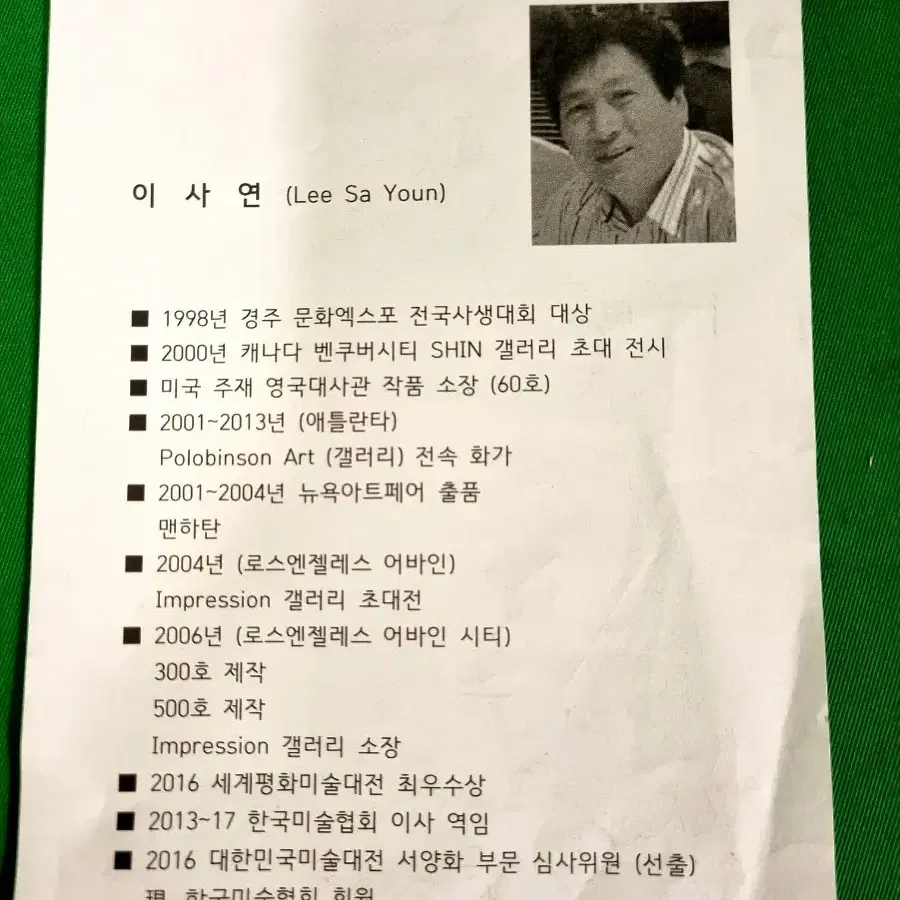 이 사 연 (Lee Sa Youn)
■ 1998년 경주 문화엑스포 전국사생대회 대상
■ 2000년 캐나다 벤쿠버시티 SHIN 갤러리 초대 전시
■ 미국 주재 영국대사관 작품 소장 (60호)
■ 2001~2013년 (애틀란타)
Polobinson Art (갤러리) 전속 화가
■ 2001~2004년 뉴욕아트페어 출품
맨하탄
■ 2004년 (로스엔젤레스 어바인)
Impression 갤러리 초대전
■ 2006년 (로스엔젤레스 어바인 시티)
300호 제작
500호 제작
Impression 갤러리 소장
■ 2016 세계평화미술대전 최우수상
■ 2013~17 한국미술협회 이사 역임
■ 2016 대한민국미술대전 서양화 부문 심사위원 (선출)
現 한국미술협회 회원